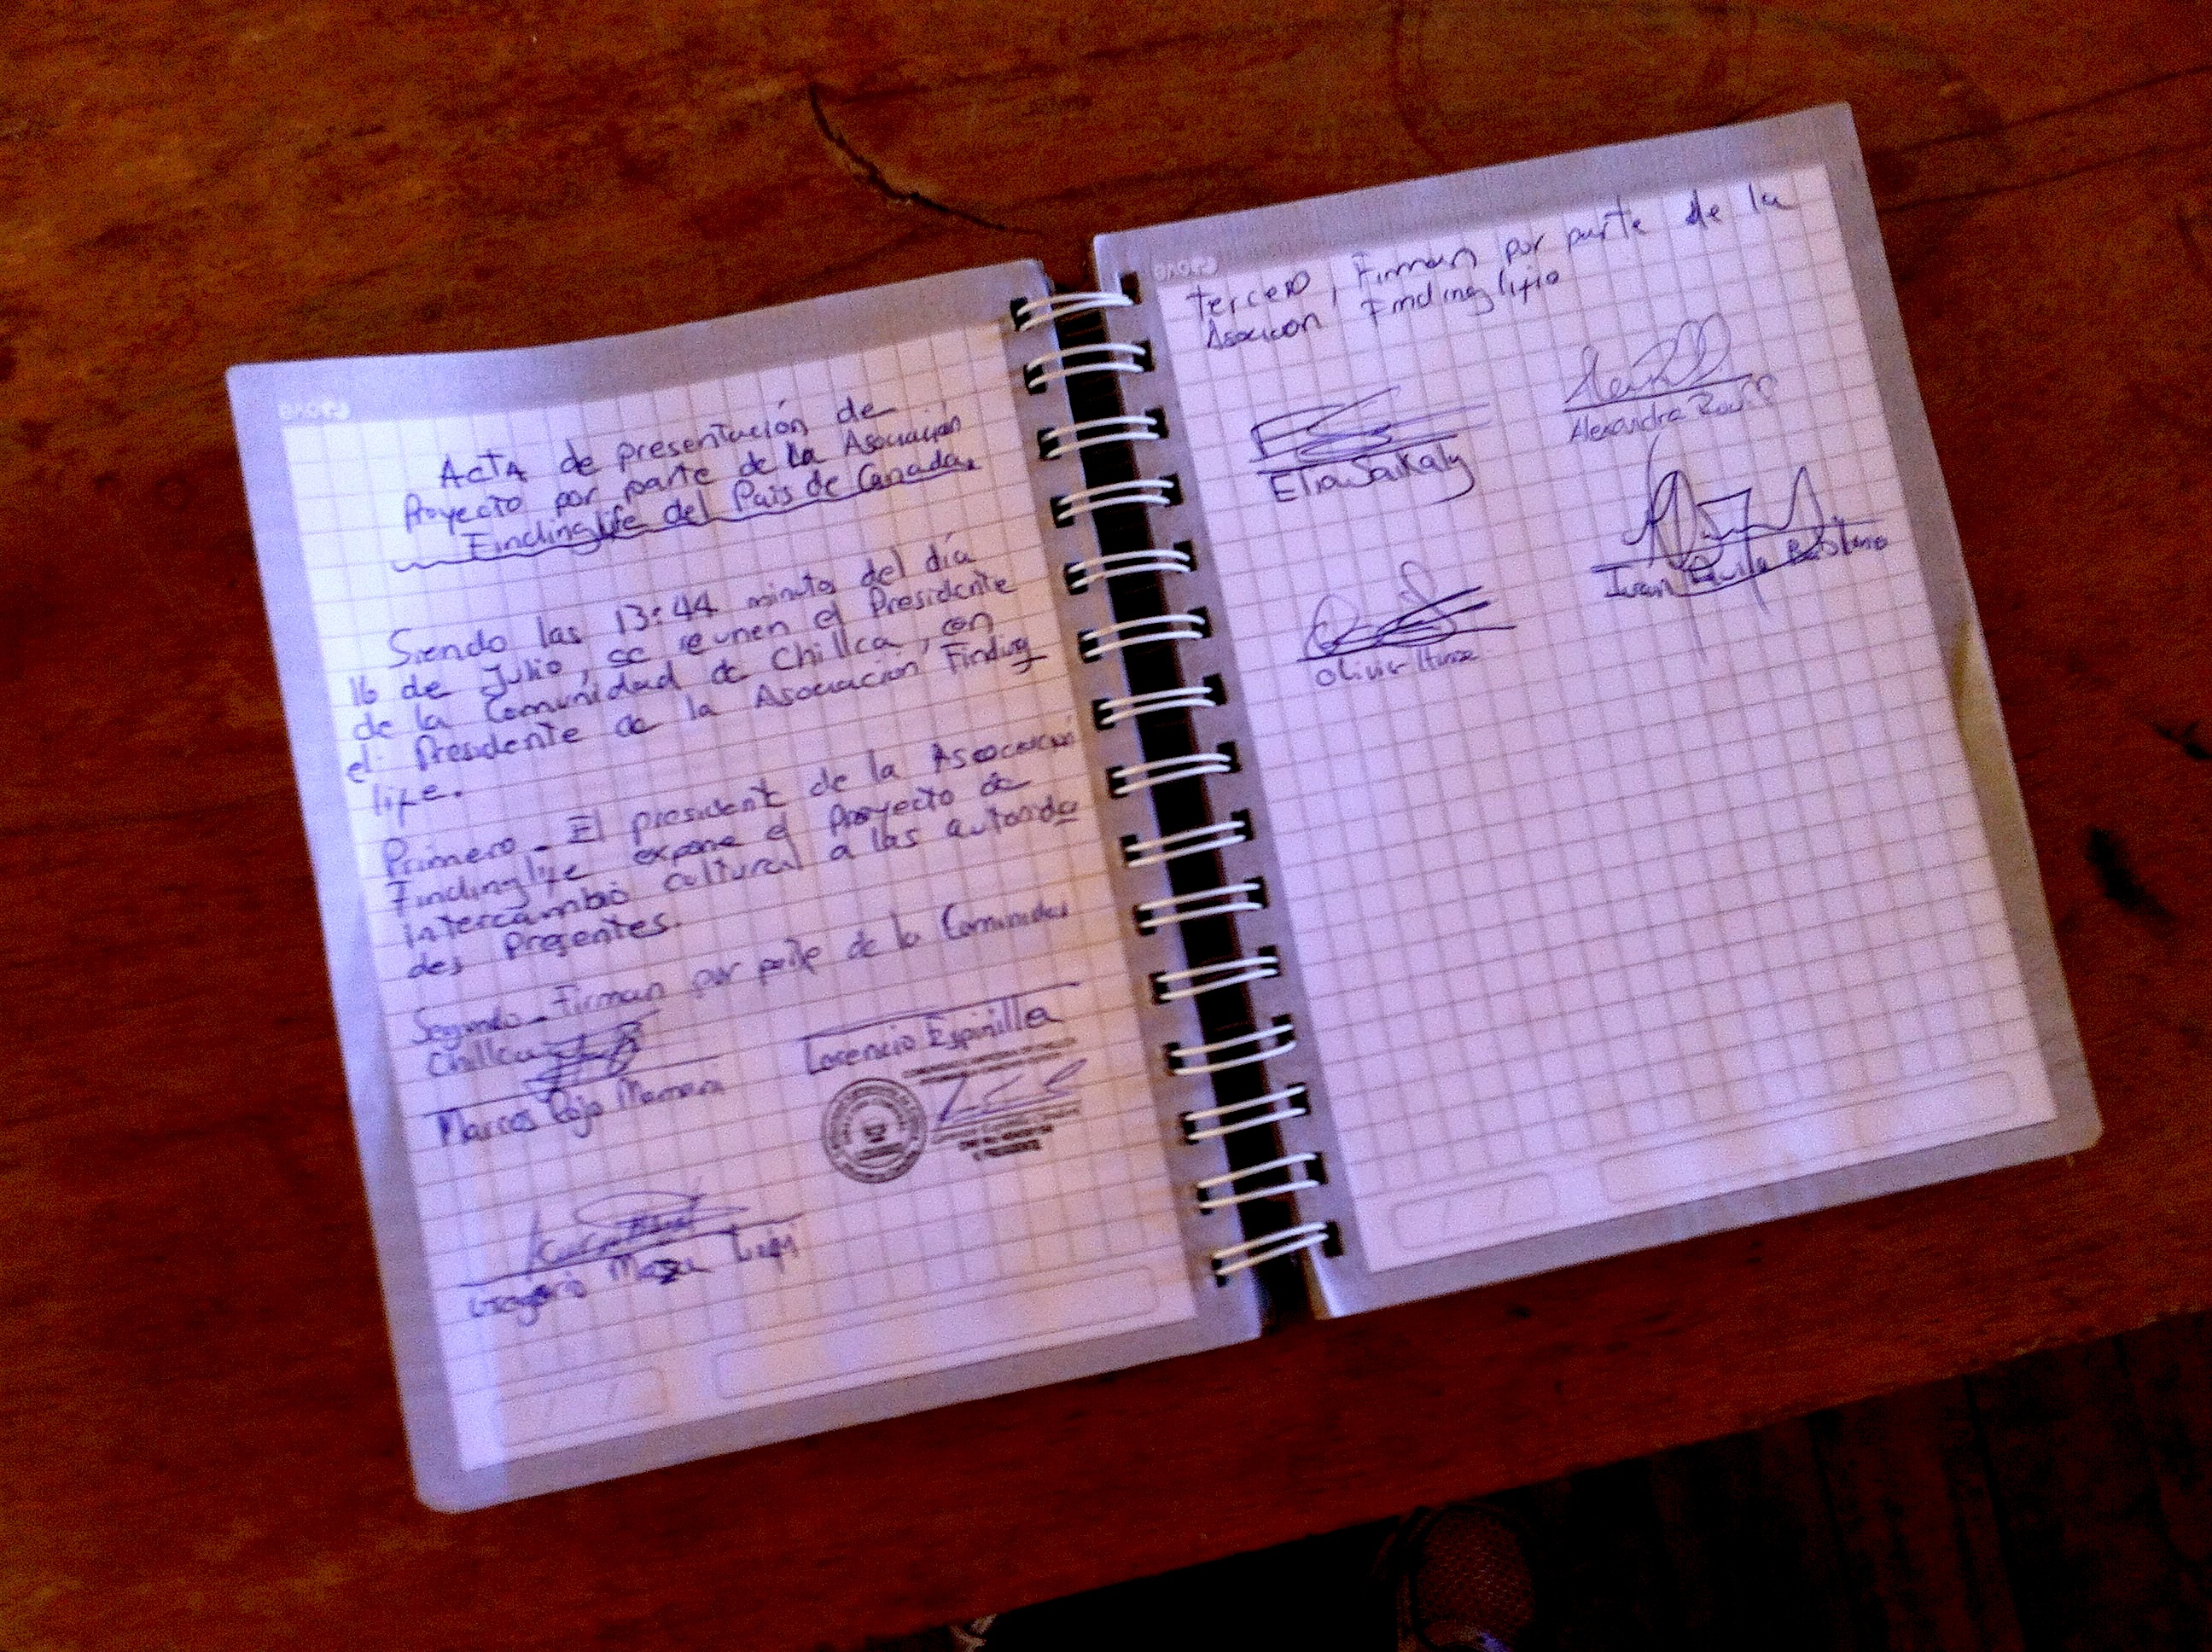 ActA de presentación de
Proyecto por parte de la Asociación
Findinglife del Pais de Canada.
Siendo las 13:44 minutos del día
16 de Julio, se reunen el Presidente
de la Comunidad de Chillca, con
el Presidente de la Asociacion Finding
life.
Primero - El president de la Asociación
Findinglife expone el Proyecto de
intercambio cultural a las autorida
des Presentes.
Segundo - Firman por parte de la Comunidad
Chillca
Marcos Mamani
Lorencio Espinilla
Gregorio
tercero, Firman por parte de la
Asocicion Findinglifio
Elia Saikaly
Alexandre
Ivan
Olivier